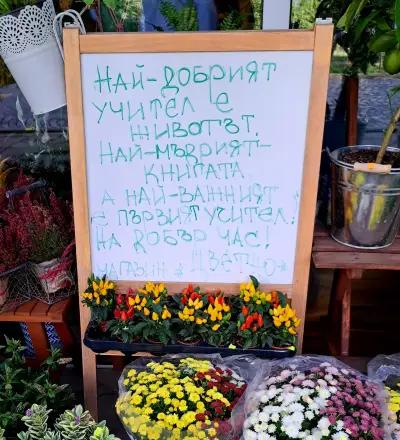 НАЙ-ДОБРИЯТ
УЧИТЕЛ Е
ЖИВОТЪТ,
НАЙ-МЪДРИЯТ-
КНИГАТА
А НАЙ-ВАЖНИЯТ
Е ПЪРВИЯТ УЧИТЕЛ!
НА ДОБЪР ЧАС!
МАГАЗИН "ЦВЕТНО"